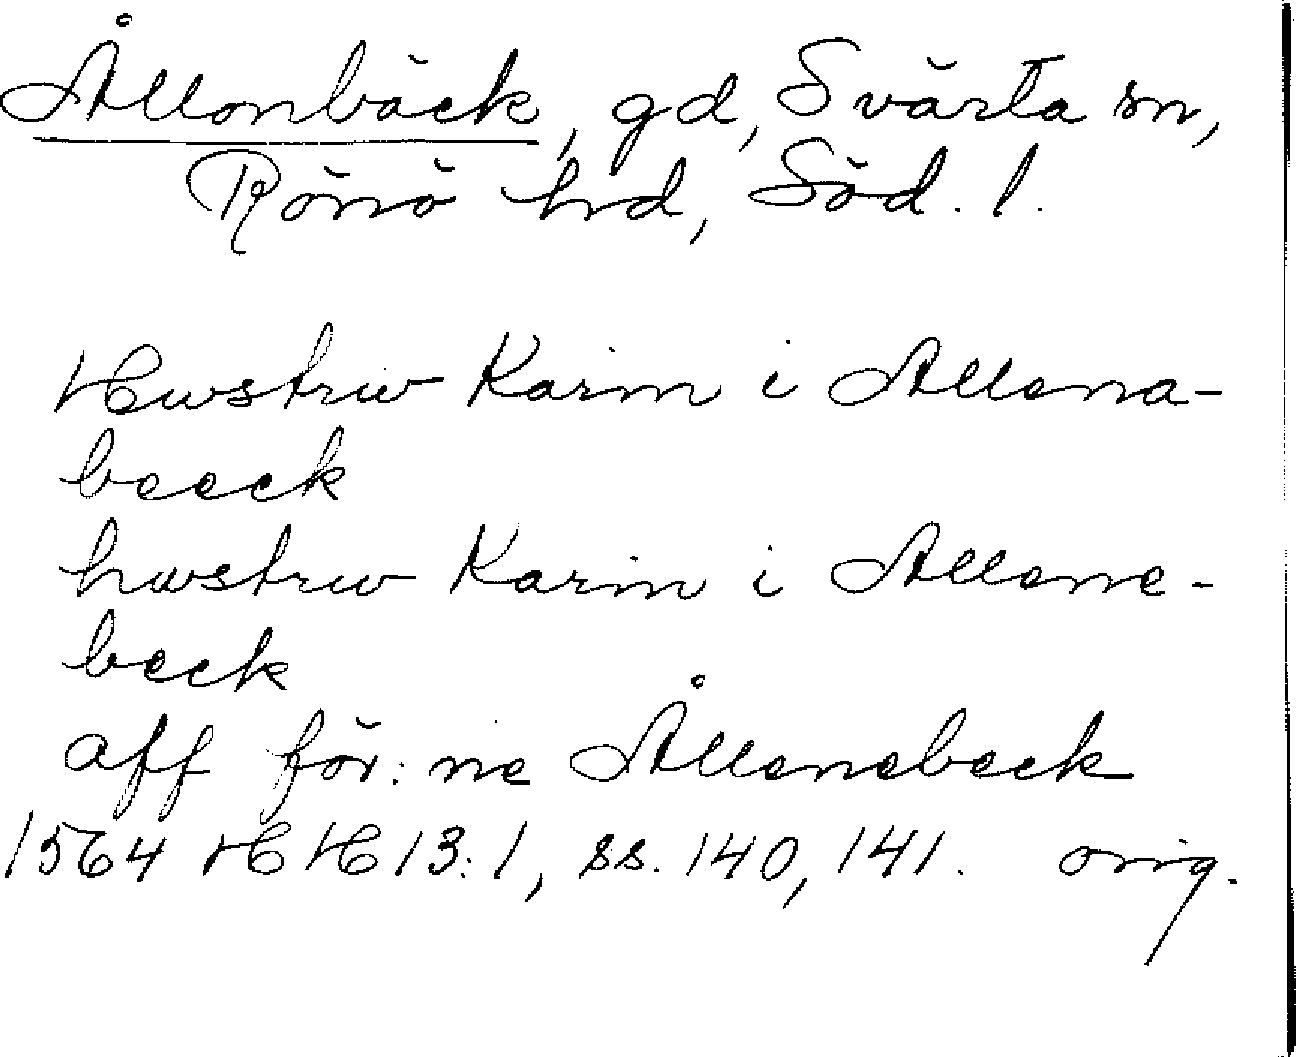 Ållonbäck, gd, Svärta sn,
Rönö hrd, Söd. l.
Hwstrw Karin i Allena-
beeck
hwstrw Karin i Allene-
beck
aff för: ne Ållenebeck
1564 HH 13:1, ss. 140, 141. orig.